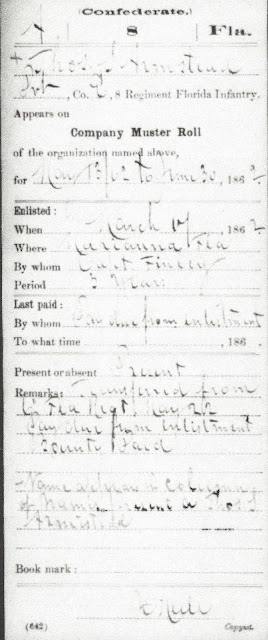 (Confederate.)
A. 8 Fla.
Thos. J. Armstead
Pvt, Co. C, 8 Regiment Florida Infantry.
Appears on
Company Muster Roll
of the organization named above,
for May 13/62 to June 30, 1862.
Enlisted:
When March 17, 1862
Where Marianna Fla
By whom Capt Finley
Period 3 Years
Last paid:
By whom Pay due from enlistment
To what time , 186 .
Present or absent Present
Remarks: Transferred from
Fla Regt May 22
Pay due from enlistment
Bounty Paid
Name appears in column
of Names Present as Thos J
Armistead
Book mark:
(642) Copyist.